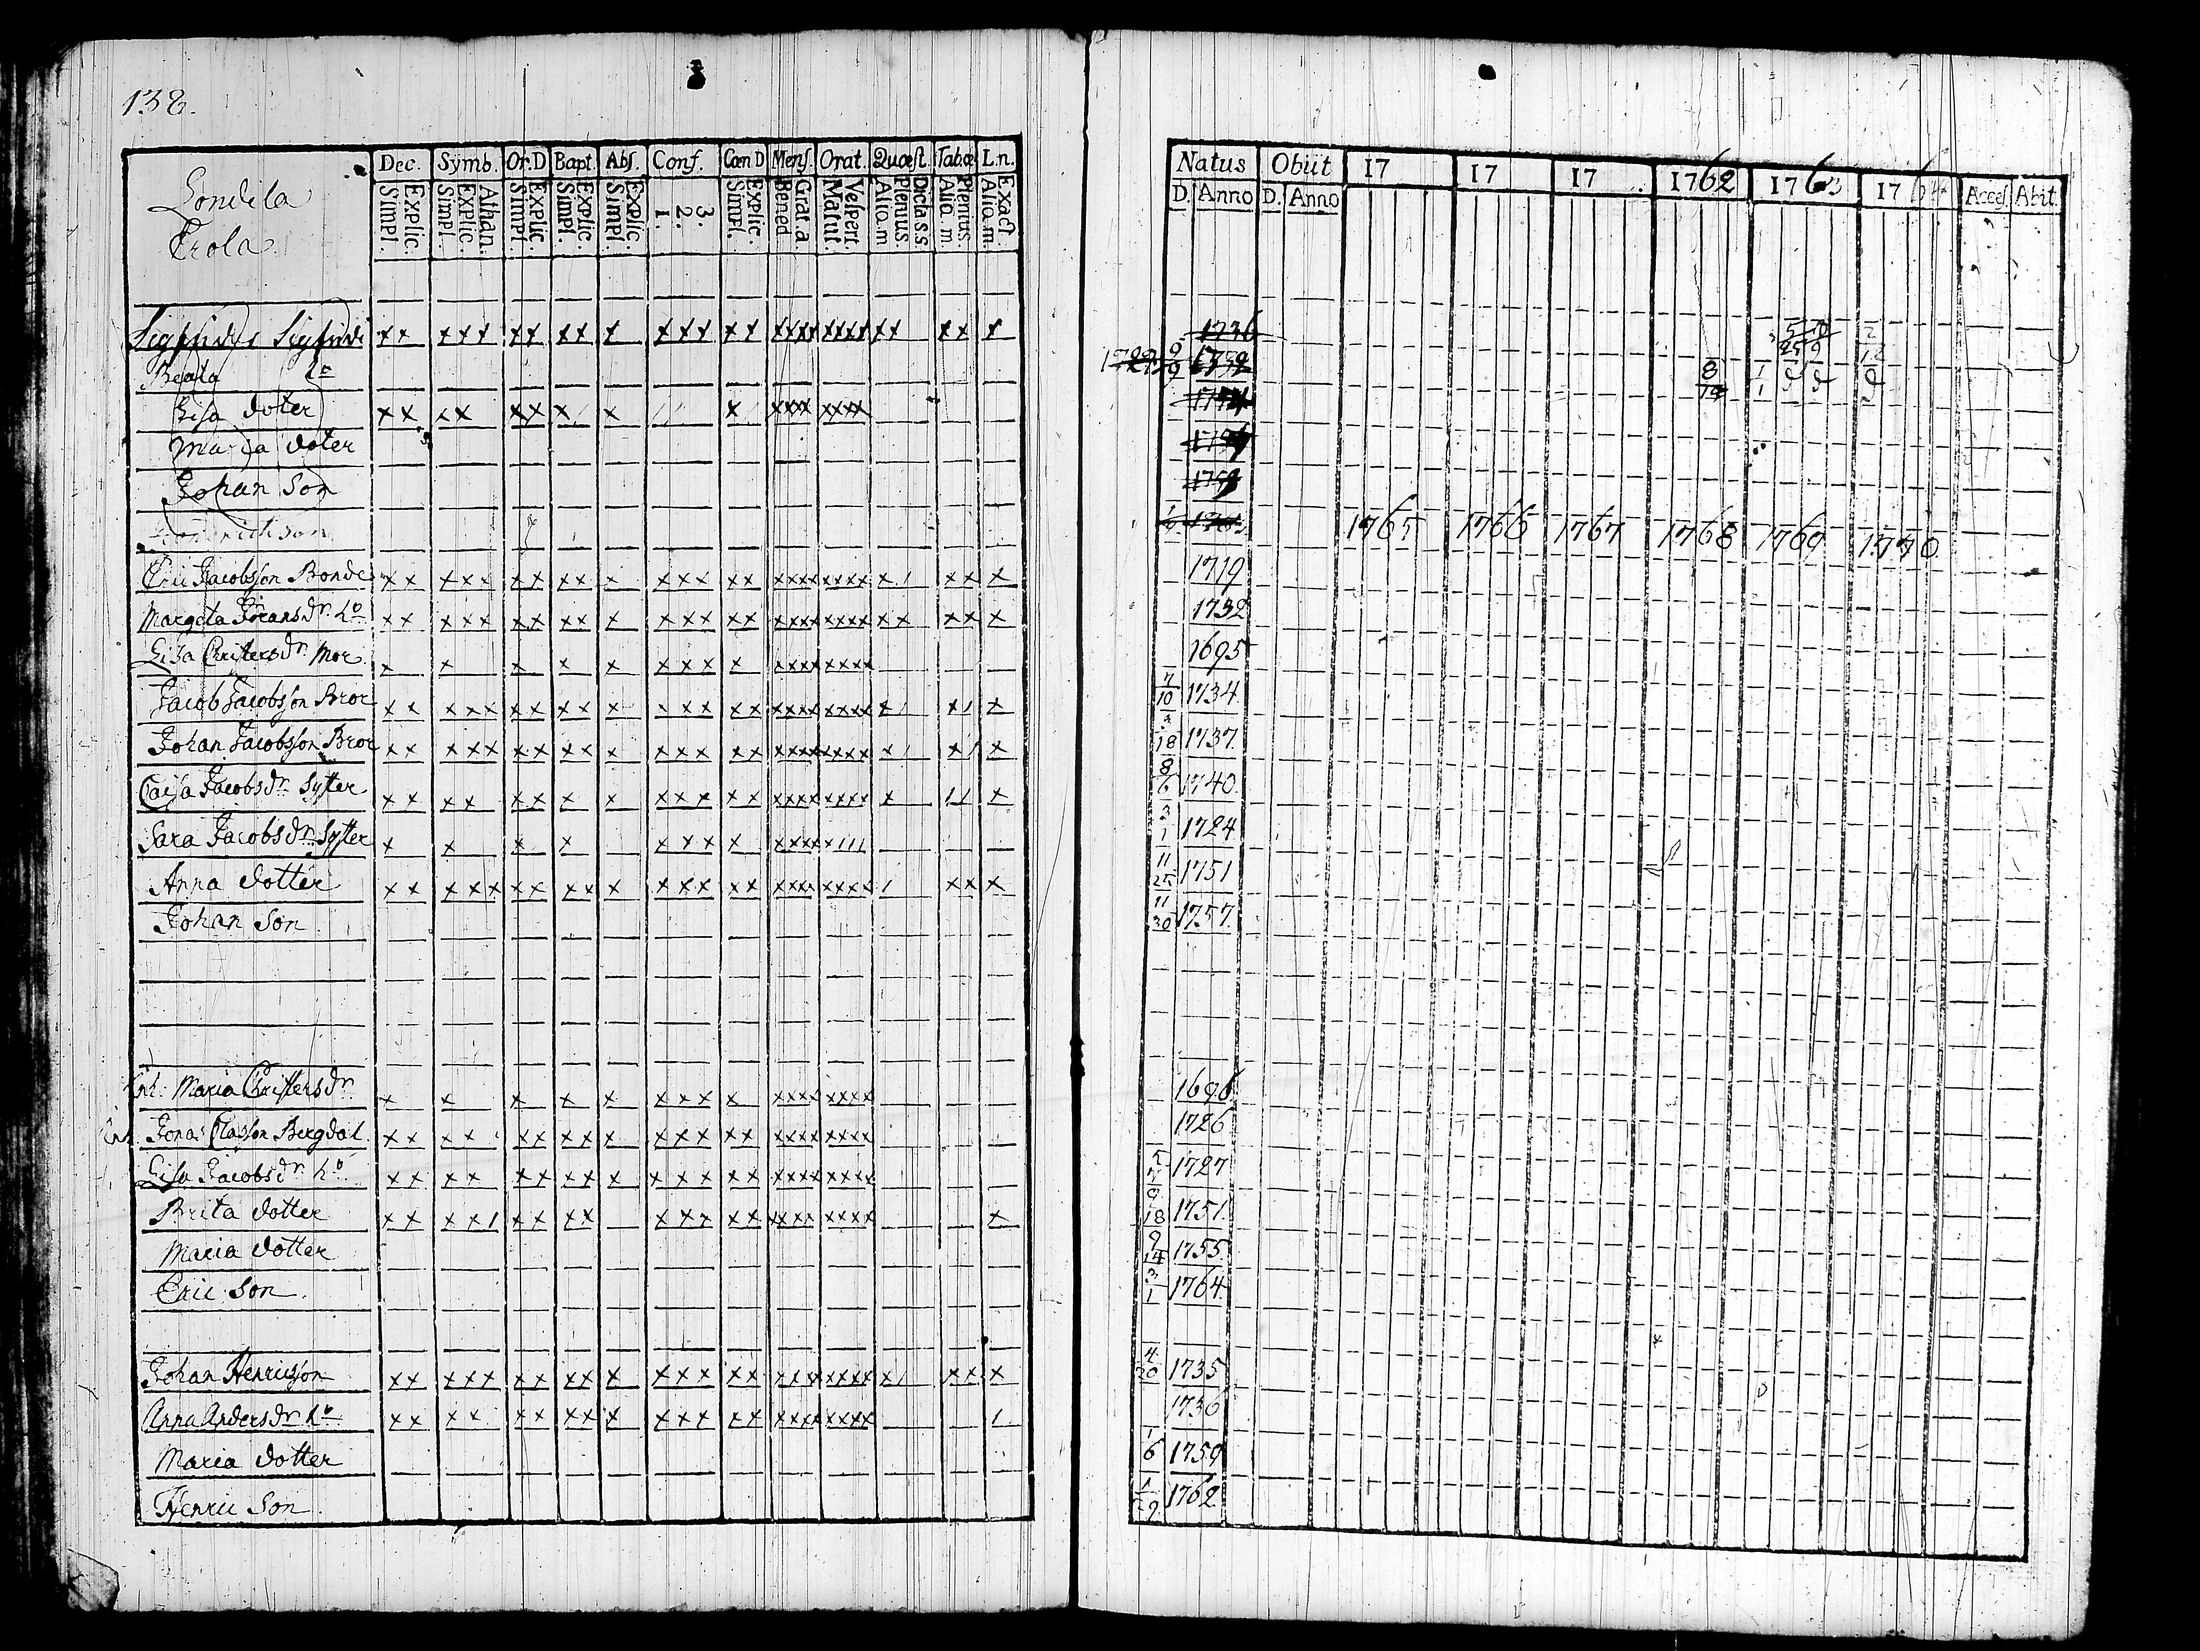 138.
Dec. Symb. Or. D Bapt. Abs. Conf. Cœn D Mens. Orat. Quæst. Tab.œ L.n.
Explic. Simpl. Athan. Explic. Simpl. Explic. Simpl. Explic. Simpl. Explic. Simpl. 3. 2. 1. Explic. Simpl. Grat. a Bened Vespert. Matut. Dicta ss Plenius. Aliq. m Plenius. Aliq. m. Exact. Aliq. m.
Londila
Erola
Sigfrid Sigfrids x x x x x x x x x x x x x x x x x x x x x x x x x x x x
Beata ho
Lisa doter x x x x x x x x x x x x x x x x x x
Maria doter
Johan Son
son
Eric Jacobsson Bonde x x x x x x x x x x x x x x x x x x x x x x x x / x x x
Margeta Jörans dr. ho x x x x x x x x x x x x x x x x x x x x x x x x x x x x
Lisa Christers dr. Mor x x x x x x x x x x x x x x x x x
Jacob Jacobsson Bror x x x x x x x x x x x x x x x x x x x x x x x x / x / x
Johan Jacobsson Bror x x x x x x x x x x x x x x x x x x x x x x x x / x / x
Caisa Jacobs dr. Syster x x x x x x x x x x x x x x x x x x x x x x / / x
Sara Jacobs dr. Syster x x x x x x x x x x x x x / / /
Anna dotter x x x x x x x x x x x x x x x x x x x x x x x / x x x
Johan Son
Maria Christers dr. x x x x x x x x x x x x x x x x x
Jonas Classon Bergdal x x x x x x x x x x x x x x x x x x x x x x
Lisa Jacobs dr. ho x x x x x x x x x x x x x x x x x x x x x x
Brita dotter x x x x / x x x x x x x x x x x x x x x x x x
Maria dotter
Eric Son
Johan Henricsson x x x x x x x x x x x x x x x x x x x x x x x x / x x x
Anna Anders dr. ho x x x x x x x x x x x x x x x x x x x x x x /
Maria dotter
Henric Son
Natus Obiit 17 17 17 1762 1763 1764 Acces. Abit.
D. Anno D. Anno
1736
1765 1766 1767 1768 1769 1770
1719
1732
1695
7/10 1734
1737
8/6 1740
3/1 1724
11/25 1751
11/30 1757
1696
1726
1727
9/18 1751
9/14 1755
3/1 1764
4/20 1735
1736
1/6 1759
1762